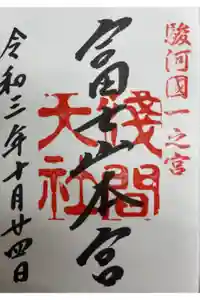 駿河國一之宮
富士山本宮
淺間大社
令和三年十月廿四日